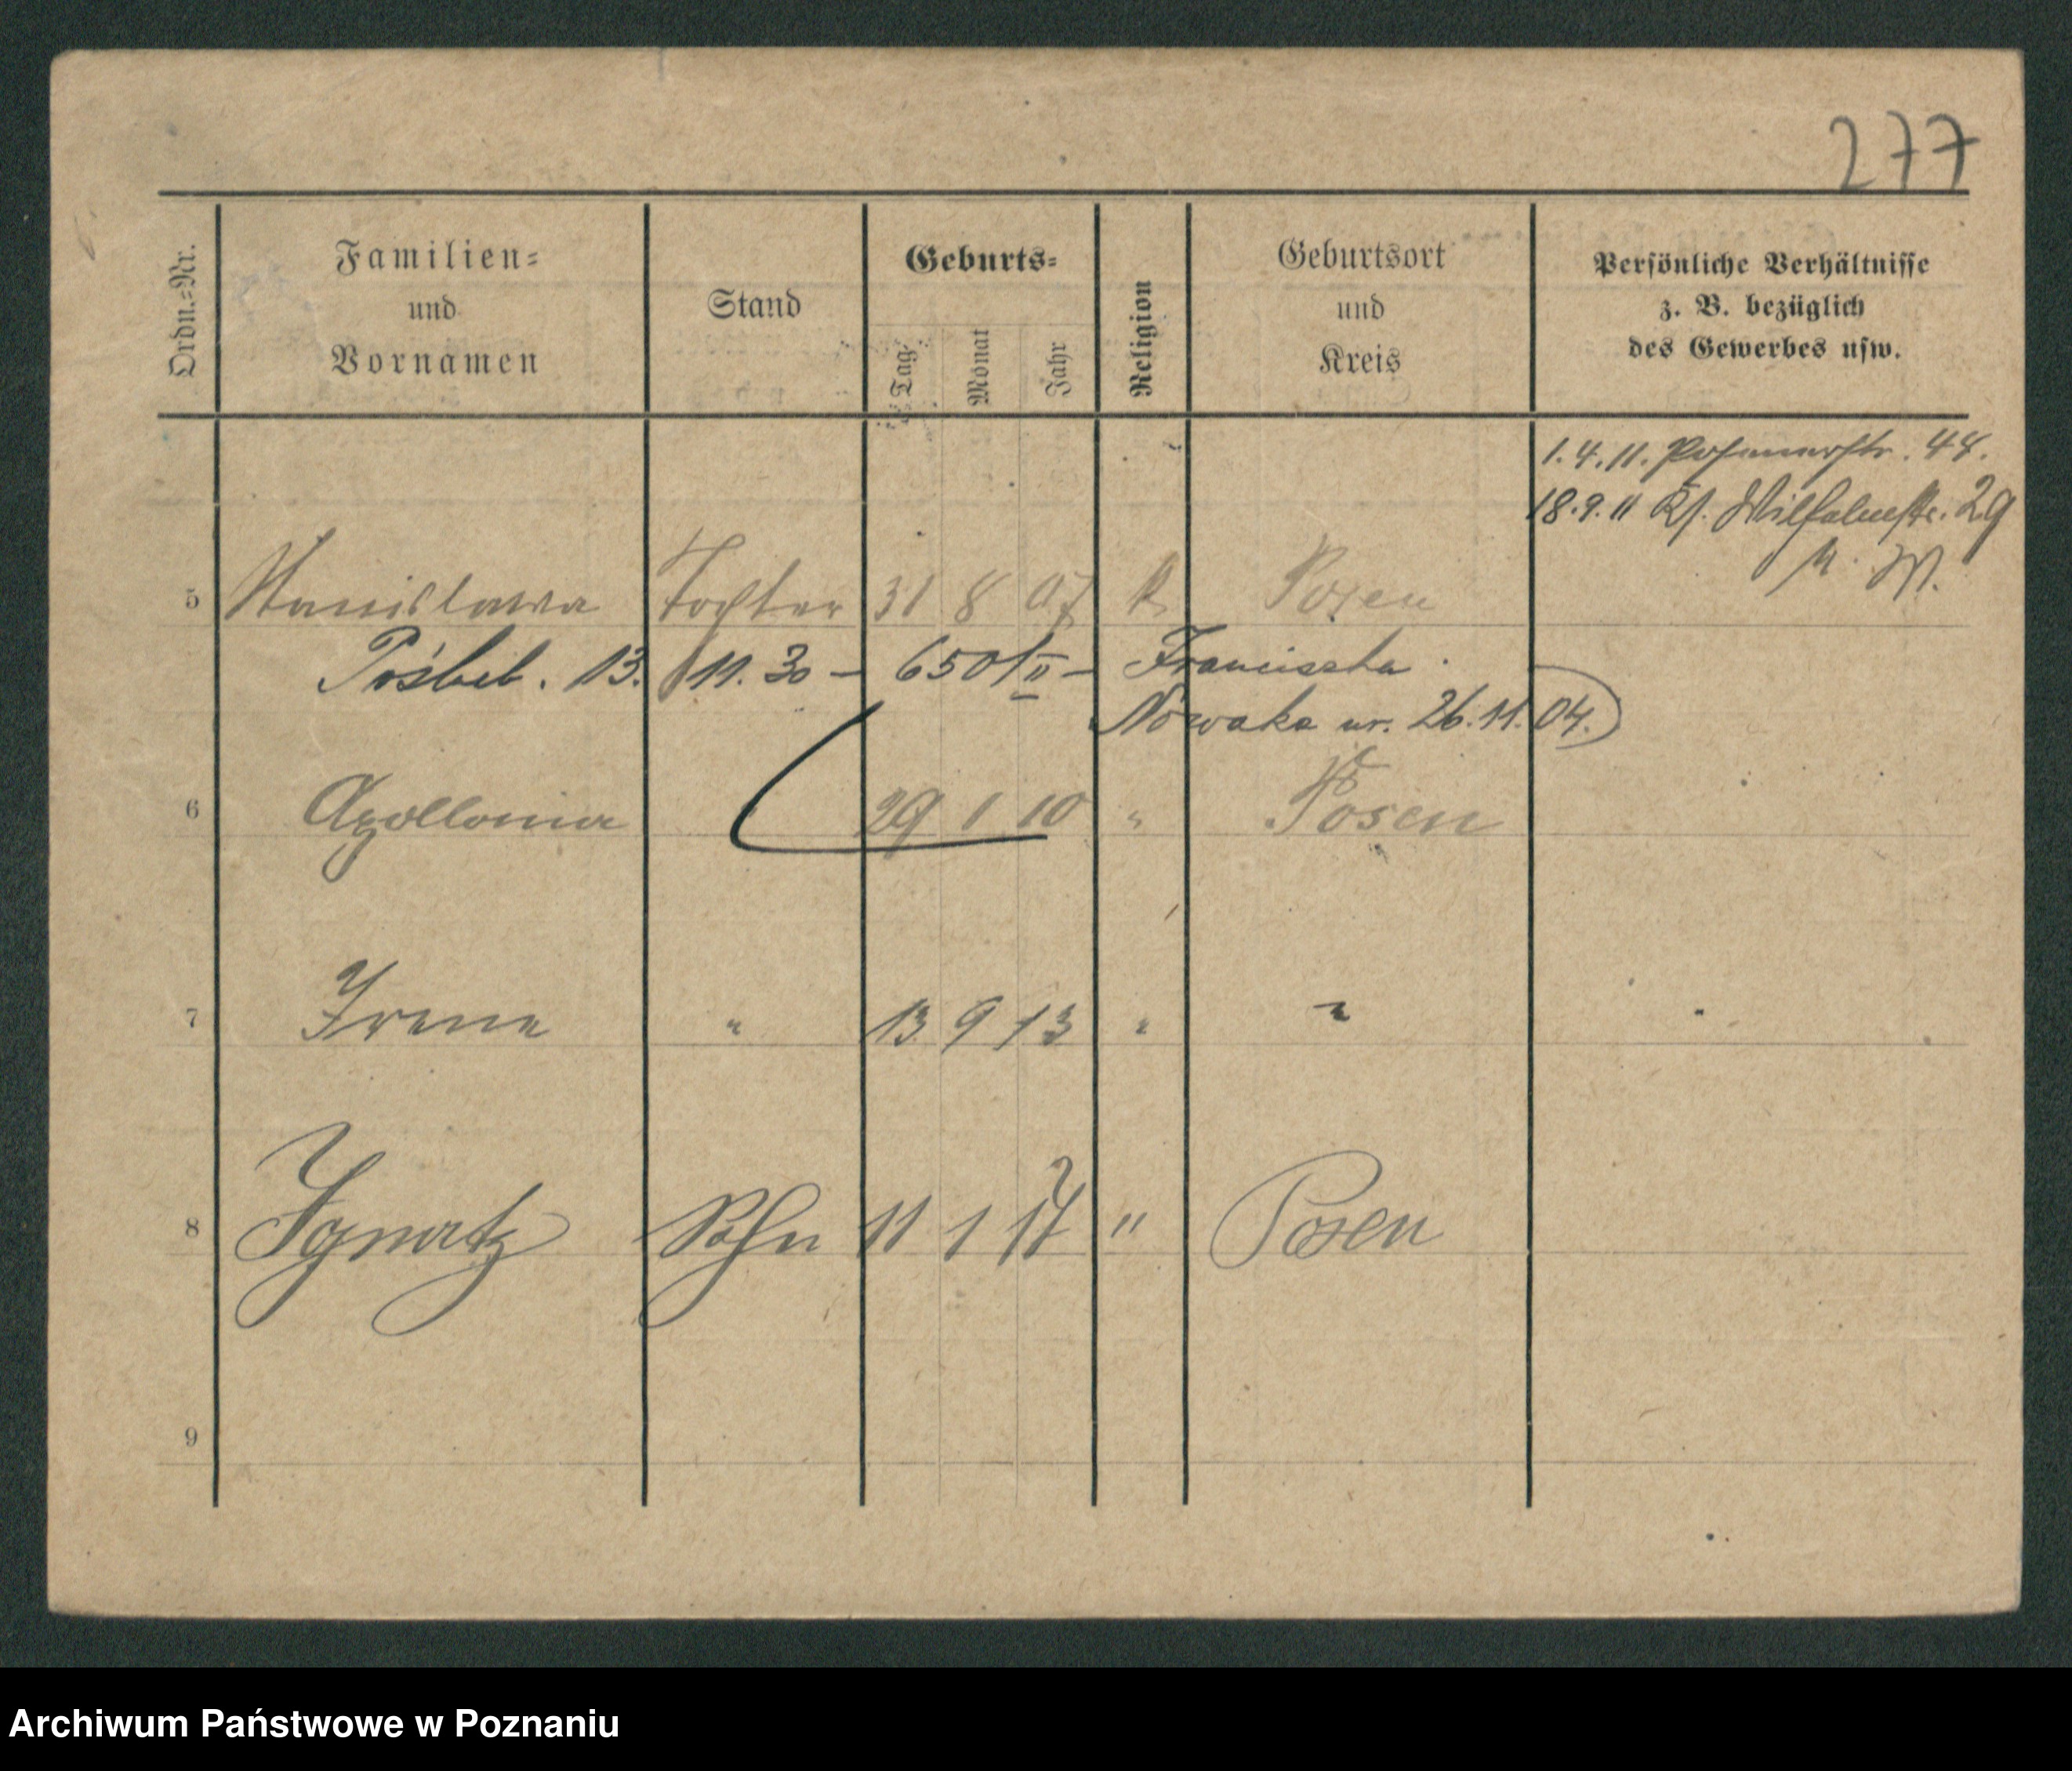 277
Ordn.=Nr.
Familien=
und
Vornamen
Stand
Geburts=
Tag
Monat
Jahr
Religion
Geburtsort
und
Kreis
Persönliche Verhältnisse
z. B. bezüglich
des Gewerbes usw.
1.4.11. Posenerstr. 44.
18.9.11 Ks. Wilhelmstr. 29
5 Stanislawa Tochter 31 8 07 K Posen
13. 11. 30 — 6501/II — Franciszka
Nowaka ur. 26.11.04.
6 Apollonia 29 1 10 " Posen
7 Irene " 13 9 13 " "
8 Ignatz Sohn 11 1 17 " Posen
9
Archiwum Państwowe w Poznaniu